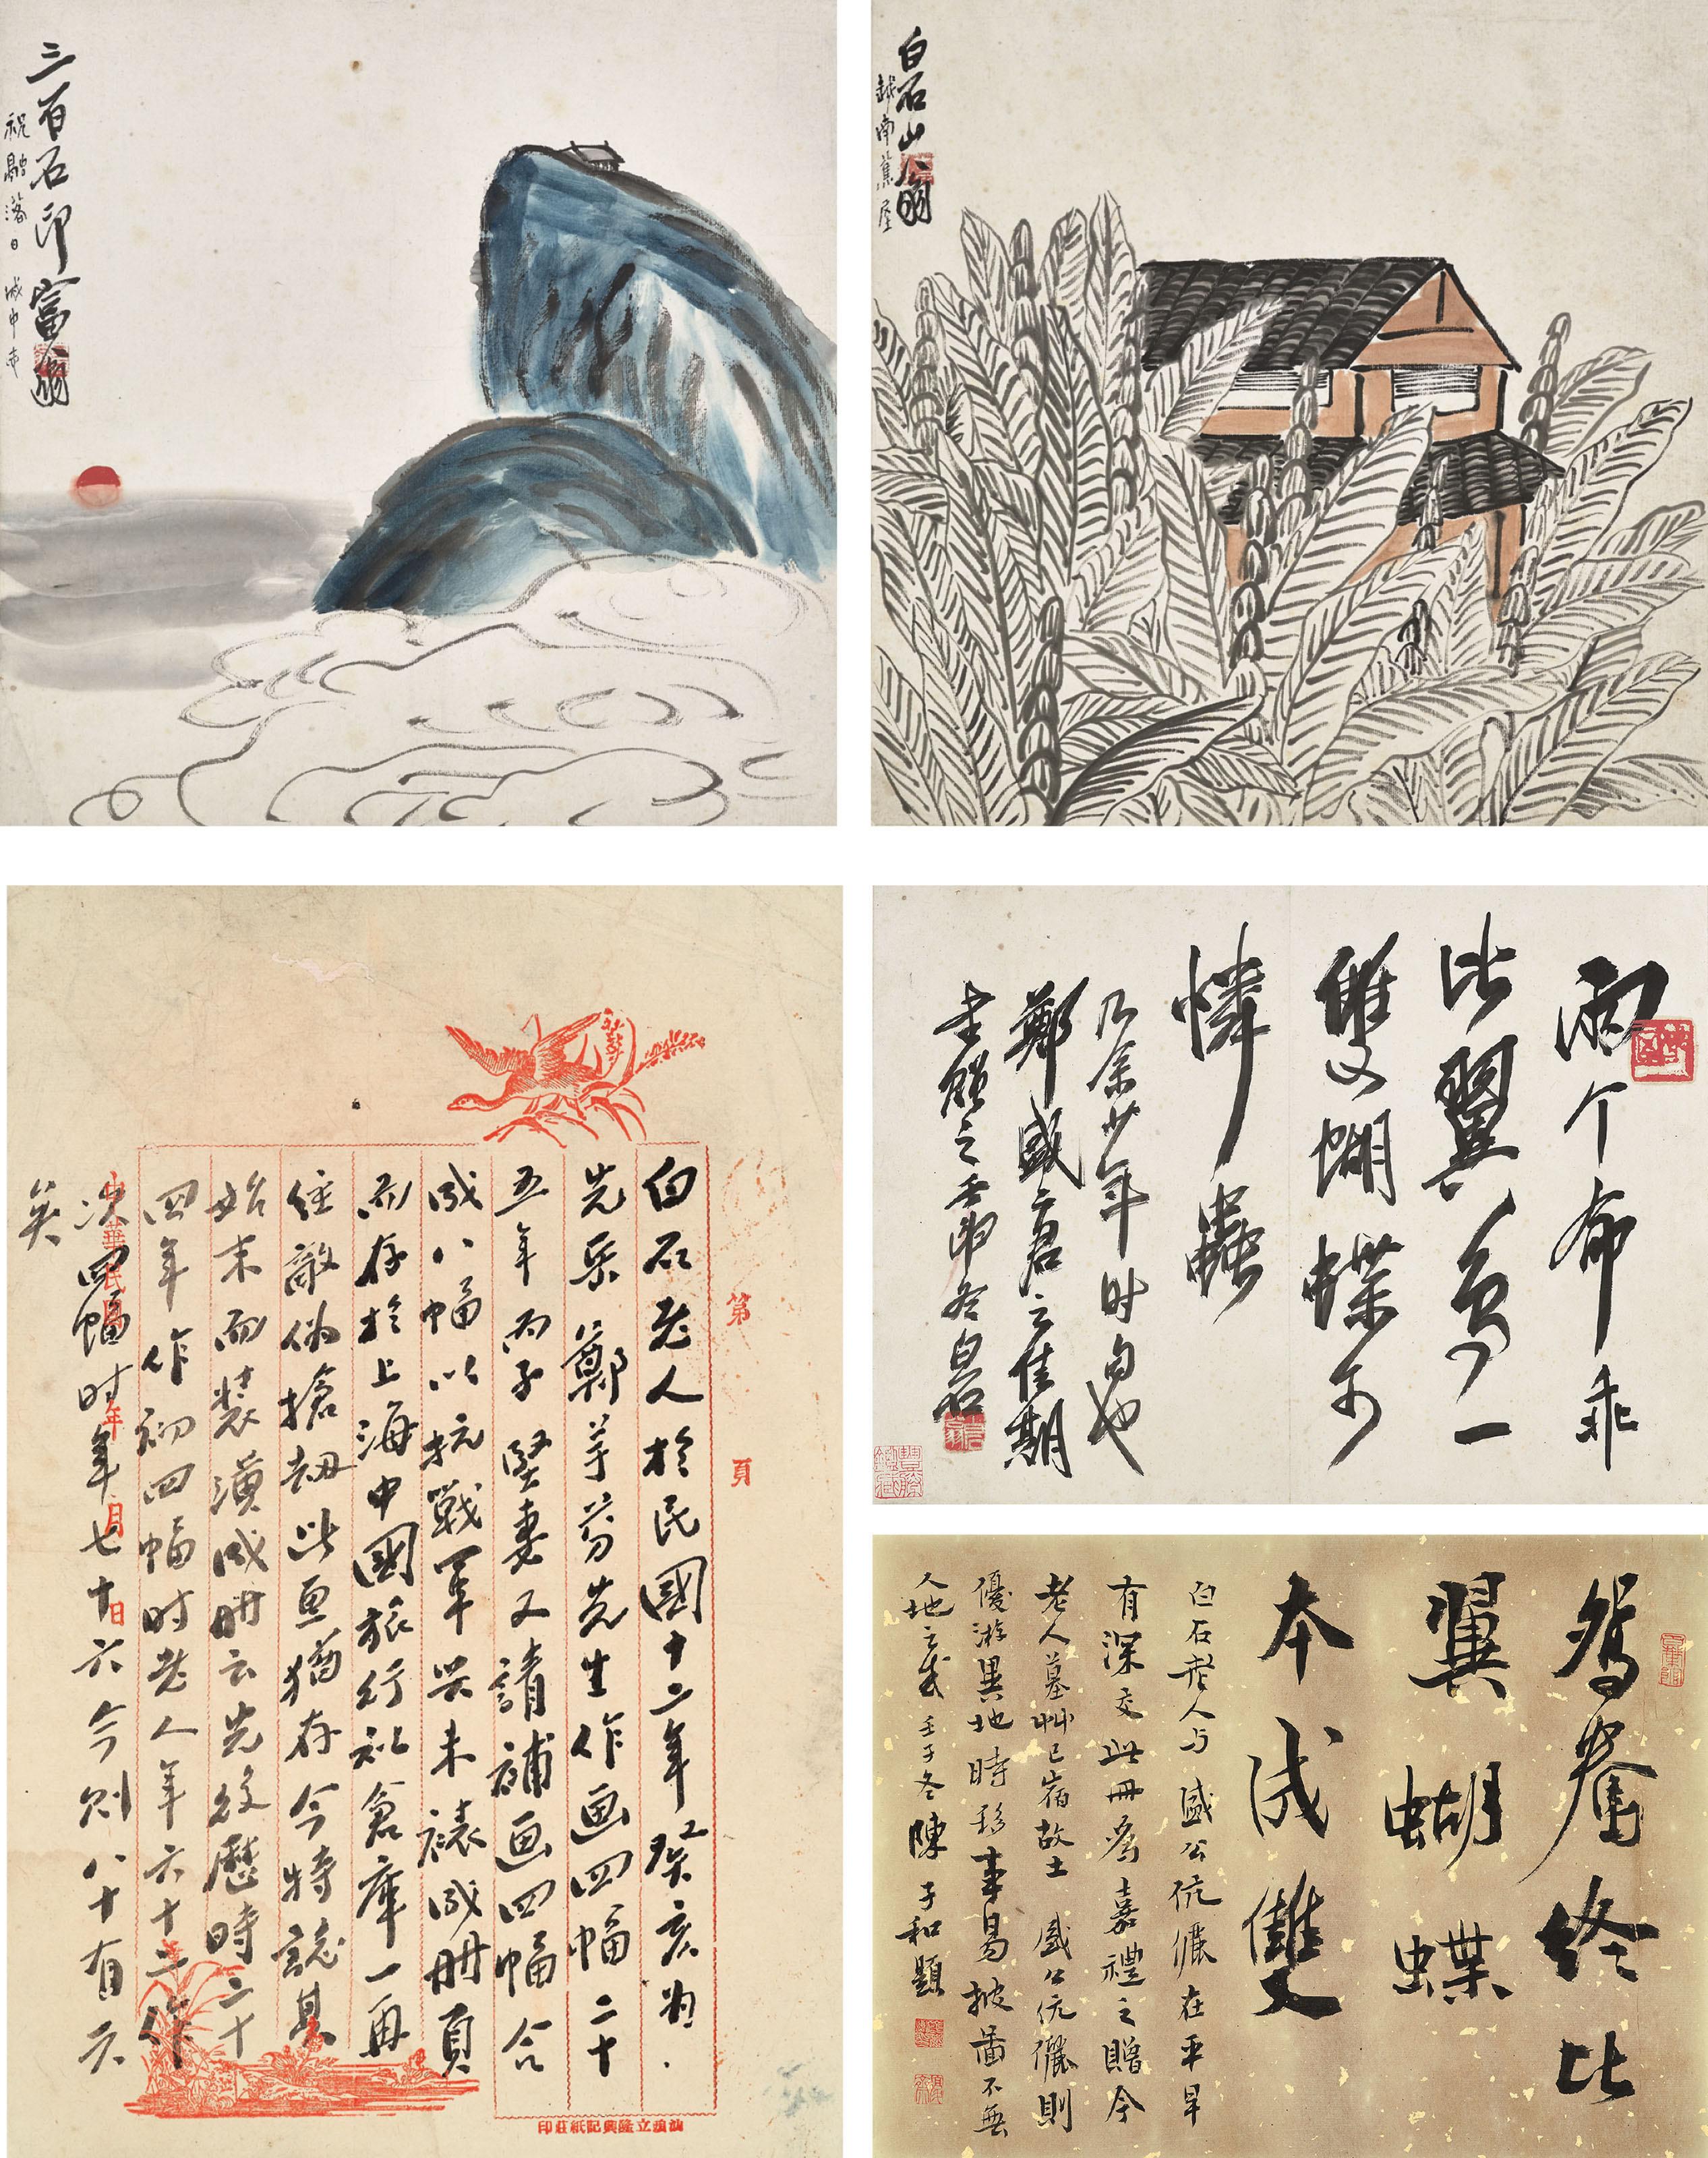 三百石印富翁
祝融落日
白石山翁
越南蕉屋
第 頁
白石老人於民國十二年癸亥為
先岳鄭芋芬先生作画四幅二十
五年丙子堅妻又請補画四幅合
成八幅以抗戰軍兴未裱成册頁
而存於上海中國旅行社倉庫一再
經敵偽搶劫此画猶存今特誌其
始末而裝潢成册云先後歷時二十
四年作初四幅时老人年六十三作
次四幅时年七十六今則八十有六
矣
中華民國 年 月 日
立隆興記紙莊印
兩个命乖
比翼鳥一
雙蝴蝶可
憐蟲
乃余少年时句也
鄭盛二君之佳期
書贈之壬申冬白石
鴛鴦終比
翼蝴蝶
本成雙
白石老人与盛公伉儷在平早
有深交此冊為嘉禮之贈今
老人墓艸已宿故土盛公伉儷則
優游異地時移事易披圖不無
人地之感壬子冬陳子和題